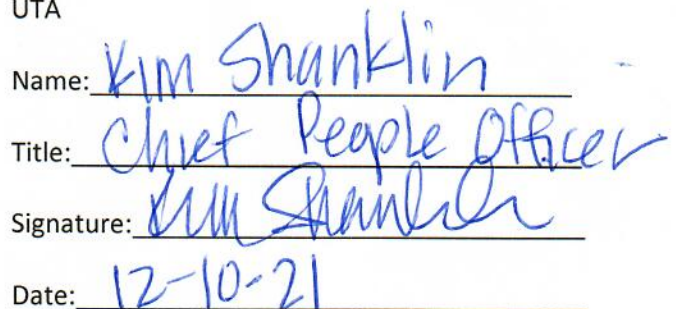 UTA
Name: Kim Shanklin
Title: Chief People Officer
Signature: Kim Shanklin
Date: 12-10-21